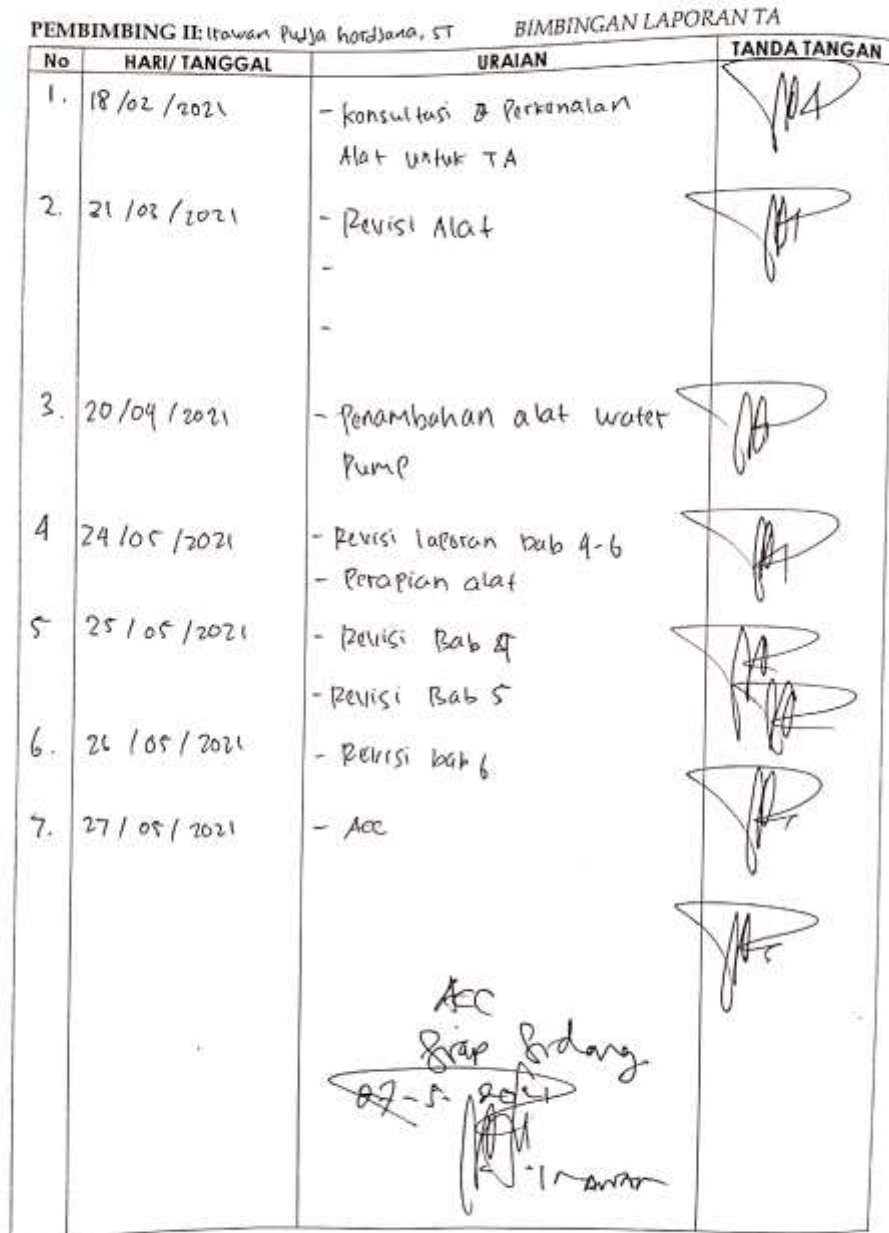 PEMBIMBING II: Irawan Pudja hardjana, ST
BIMBINGAN LAPORAN TA
No HARI/ TANGGAL URAIAN TANDA TANGAN
1. 18/02/2021 - konsultasi & Perkenalan
Alat untuk TA
2. 31/03/2021 - Revisi Alat
-
-
3. 20/04/2021 - Penambahan alat water
Pump
4 24/05/2021 - Revisi laporan bab 4-6
- Perapian alat
5 25/05/2021 - Revisi Bab 4
- Revisi Bab 5
6. 26/05/2021 - Revisi bab 6
7. 27/05/2021 - Acc
ACC
Siap Sidang
27-5-2021
Irawan